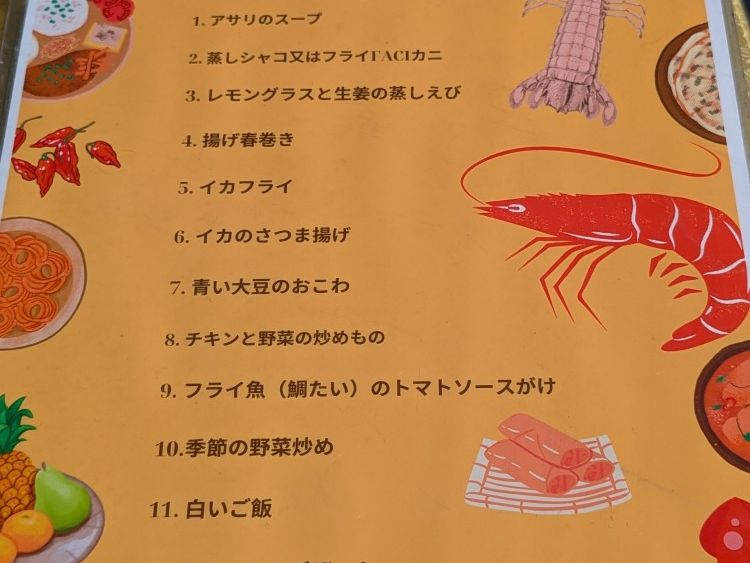 1. アサリのスープ
2. 蒸しシャコ又はフライГACIカニ
3. レモングラスと生姜の蒸しえび
4. 揚げ春巻き
5. イカフライ
6. イカのさつま揚げ
7. 青い大豆のおこわ
8. チキンと野菜の炒めもの
9. フライ魚（鯛たい）のトマトソースがけ
10.季節の野菜炒め
11. 白いご飯